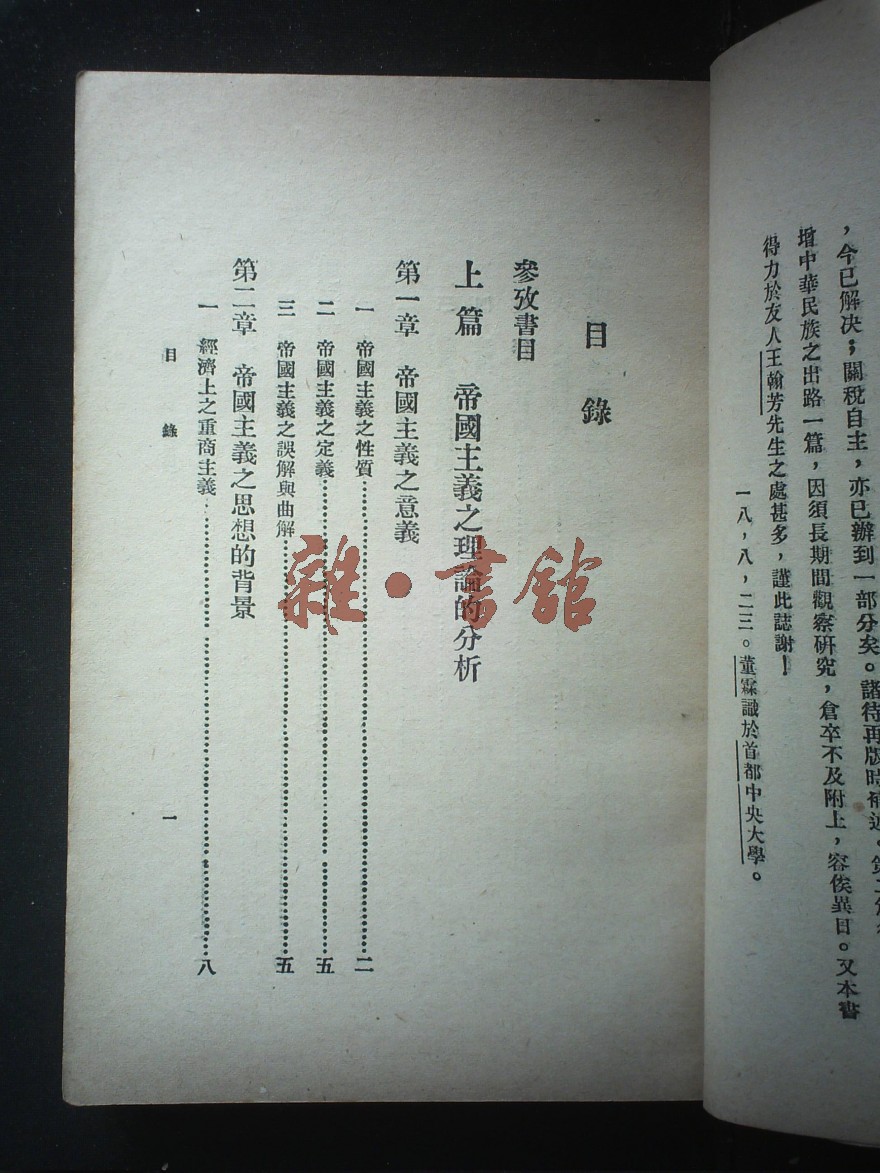 ，今已解决；關稅自主，亦已辦到一部分矣。諸待再版時補述。第二篇
增中華民族之出路一篇，因須長期間觀察研究，倉卒不及附上，容俟異日。又本書
得力於友人王翰芳先生之處甚多，謹此誌謝！
一八，八，二三。董霖識於首都中央大學。
目錄
參攷書目
上篇 帝國主義之理論的分析
第一章 帝國主義之意義
一 帝國主義之性質……二
二 帝國主義之定義……五
三 帝國主義之誤解與曲解……五
第二章 帝國主義之思想的背景
一 經濟上之重商主義……八
目錄
一
雜·書館